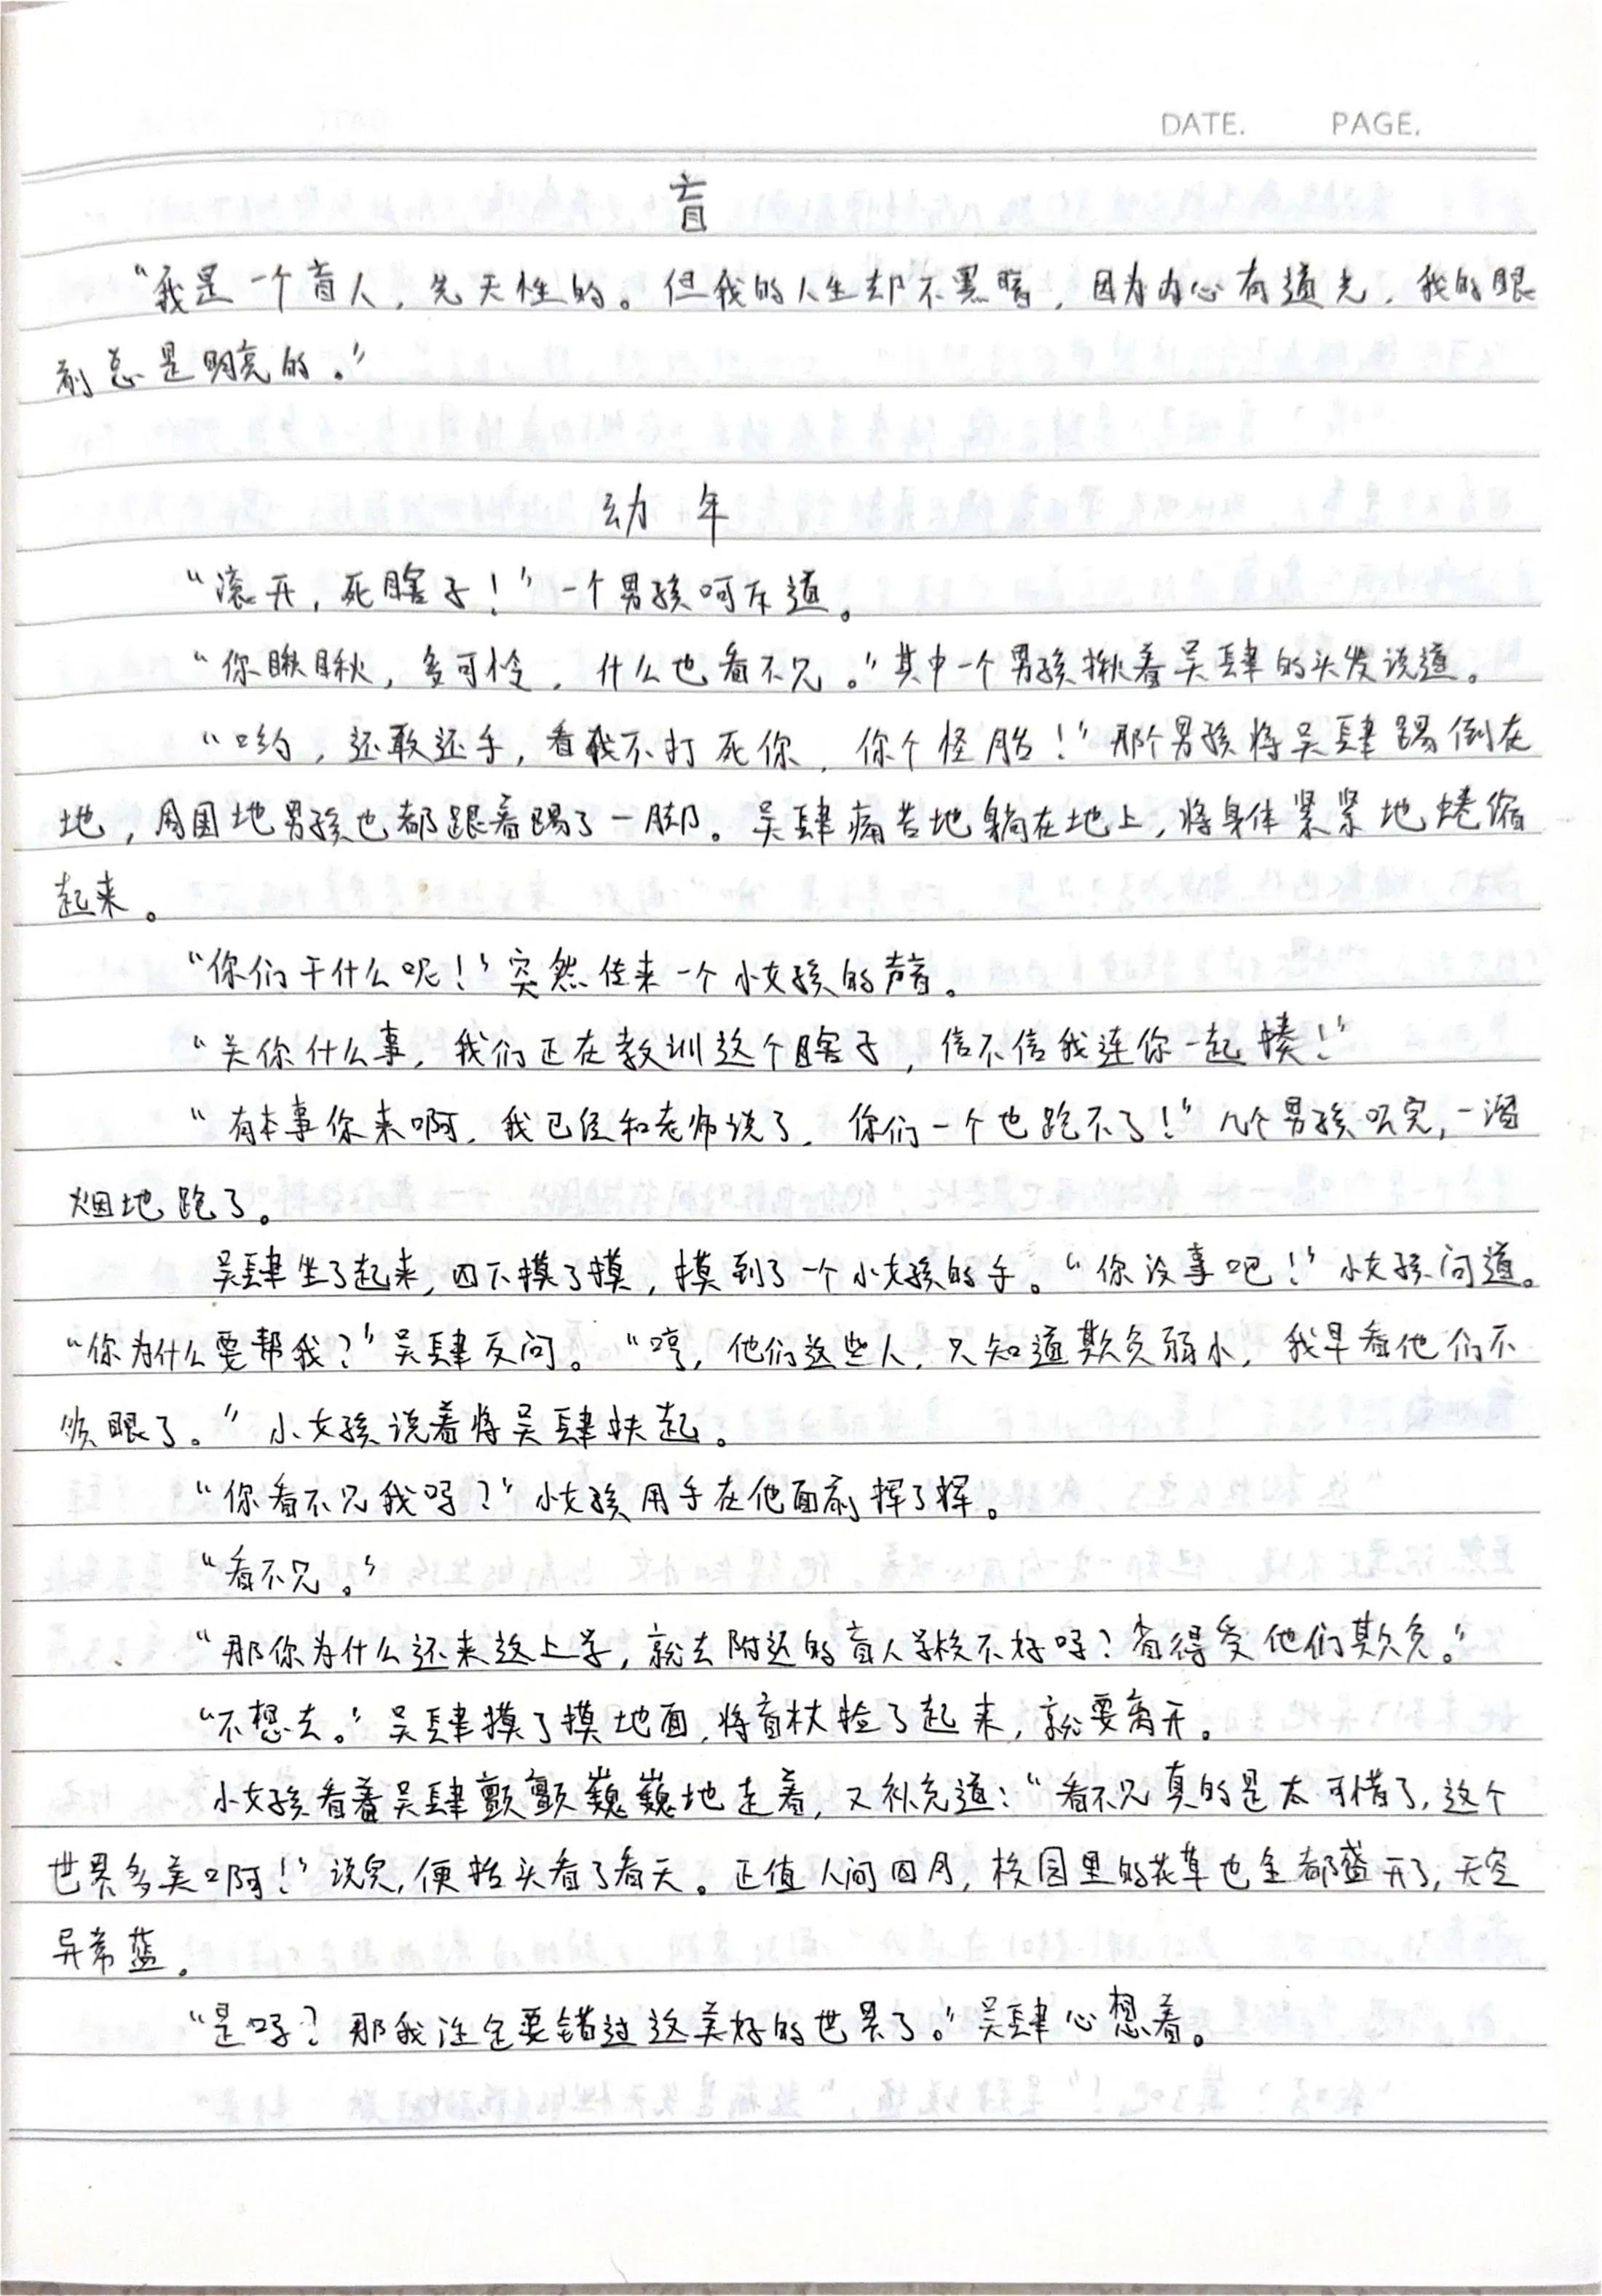 DATE. PAGE.
盲
“我是一个盲人，先天性的。但我的人生却不黑暗，因为内心有道光，我的眼
前总是明亮的。”
幼年
“滚开，死瞎子！”一个男孩呵斥道。
“你瞅瞅，多可怜，什么也看不见。”其中一个男孩揪着吴肆的头发说道。
“哟，还敢还手，看我不打死你，你个怪胎！”那个男孩将吴肆踢倒在
地，周围地男孩也都跟着踢了一脚。吴肆痛苦地躺在地上，将身体紧紧地蜷缩
起来。
“你们干什么呢！”突然传来一个小女孩的声音。
“关你什么事，我们正在教训这个瞎子，信不信我连你一起揍！”
“有本事你来啊，我已经和老师说了，你们一个也跑不了！”几个男孩听完，一溜
烟地跑了。
吴肆坐了起来，四下摸了摸，摸到了一个小女孩的手。“你没事吧！”小女孩问道。
“你为什么要帮我？”吴肆反问。“哼，他们这些人，只知道欺负弱小，我早看他们不
顺眼了。”小女孩说着将吴肆扶起。
“你看不见我吗？”小女孩用手在他面前挥了挥。
“看不见。”
“那你为什么还来这上学，就去附近的盲人学校不好吗？省得受他们欺负。”
“不想去。”吴肆摸了摸地面，将盲杖捡了起来，就要离开。
小女孩看着吴肆颤颤巍巍地走着，又补充道：“看不见真的是太可惜了，这个
世界多美啊！”说完，便抬头看了看天。正值人间四月，校园里的花草也全都盛开了，天空
异常蓝。
“是吗？那我注定要错过这美好的世界了。”吴肆心想着。